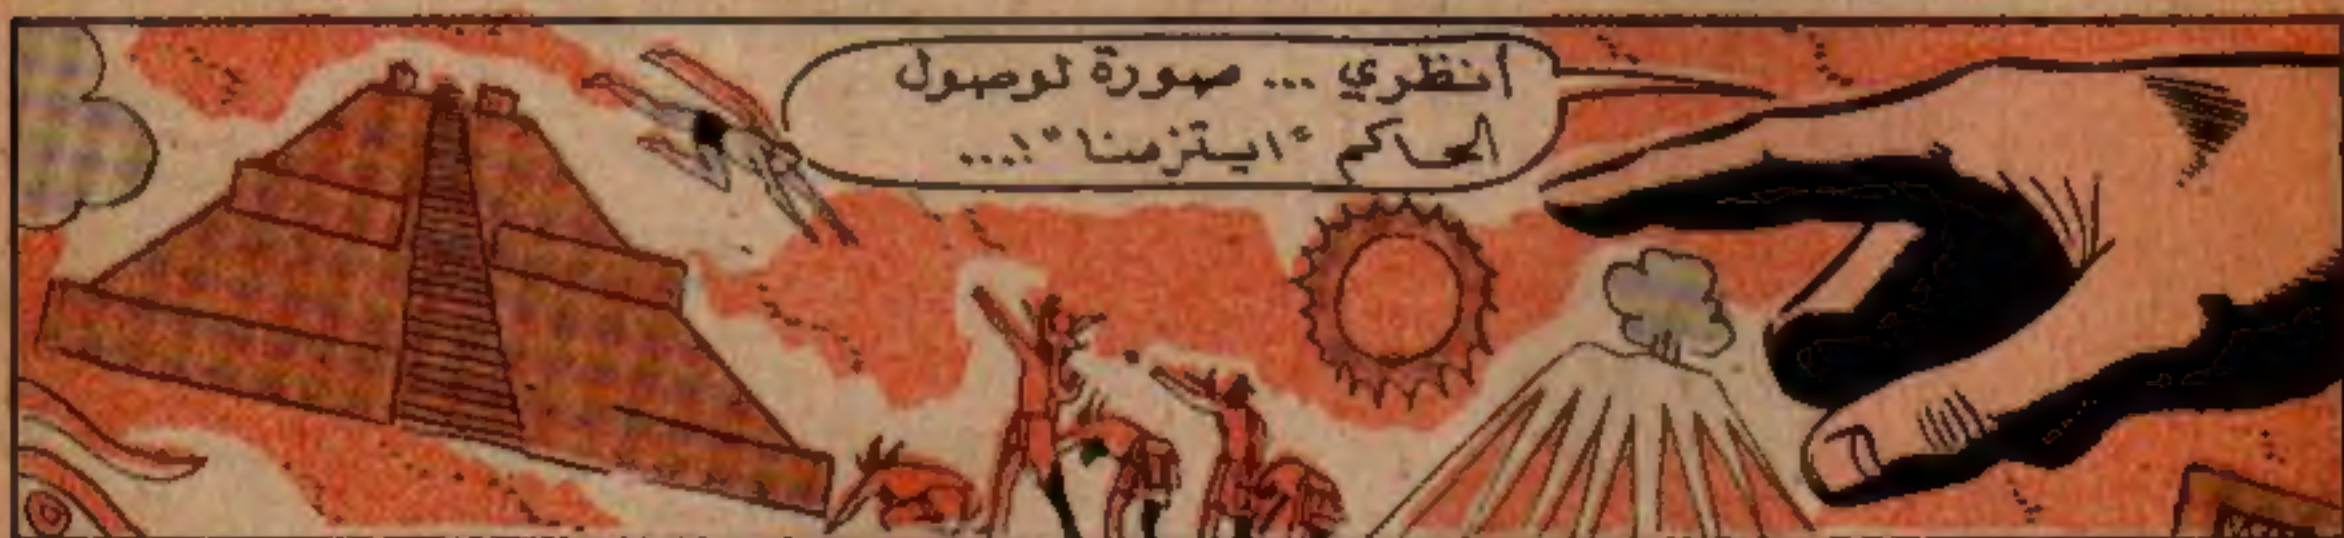 أنظري ... صورة لوصول
الحاكم "ايتزمنا"!...